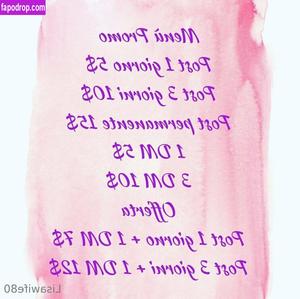 fapodrop.com
Menù Promo
Post 1 giorno 5$
Post 3 giorni 10$
Post permanente 15$
1 DM 5$
3 DM 10$
Offerta
Post 1 giorno + 1 DM 7$
Post 3 giorni + 1 DM 12$
Lisawife80